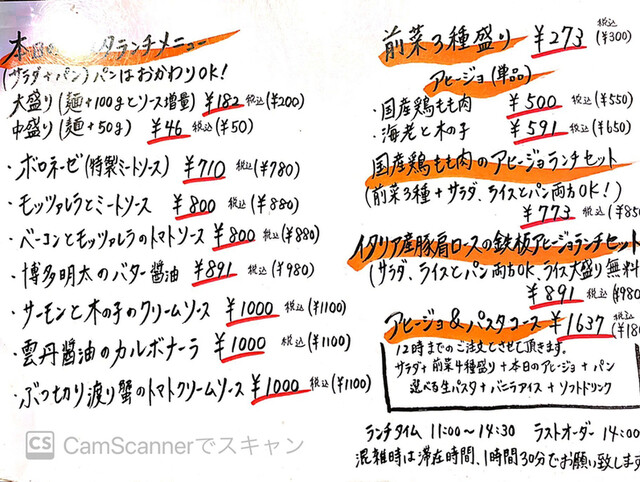 本日の パスタランチメニュー
(サラダ+パン)パンはおかわりOK!
大盛り(麺+100gとソース増量) ¥182 税込(¥200)
中盛り(麺+50g) ¥46 税込(¥50)
・ボロネーゼ(特製ミートソース) ¥710 税込(¥780)
・モッツァレラとミートソース ¥800 税込(¥880)
・ベーコンとモッツァレラのトマトソース ¥800 税込(¥880)
・博多明太のバター醤油 ¥891 税込(¥980)
・サーモンと木の子のクリームソース ¥1000 税込(¥1100)
・雲丹醤油のカルボナーラ ¥1000 税込(¥1100)
・ぶつ切り渡り蟹のトマトクリームソース ¥1000 税込(¥1100)
CS CamScannerでスキャン
前菜3種盛り ¥273 税込(¥300)
アヒージョ(単品)
・国産鶏もも肉 ¥500 税込(¥550)
・海老と木の子 ¥591 税込(¥650)
国産鶏もも肉のアヒージョランチセット
(前菜3種+サラダ、ライスとパン両方OK!)
¥773 税込(¥85
イタリア産豚肩ロースの鉄板アヒージョランチセット
(サラダ、ライスとパン両方OK、ライス大盛り無料
¥891 税込(¥980
アヒージョ&パスタコース ¥1637 税込(¥180
12時までのご注文とさせて頂きます。
サラダ+前菜4種盛り+本日のアヒージョ+パン
選べる生パスタ+バニラアイス+ソフトドリンク
ランチタイム 11:00~14:30 ラストオーダー 14:00
混雑時は滞在時間、1時間30分でお願い致します